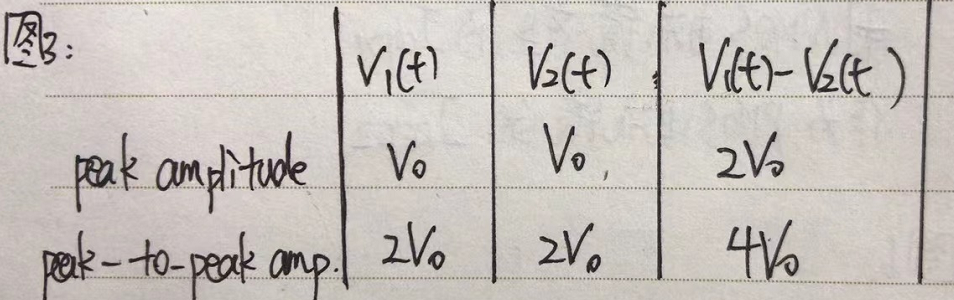 图3:
V₁(t) V₂(t) V₁(t)-V₂(t)
peak amplitude V₀ V₀ 2V₀
peak-to-peak amp. 2V₀ 2V₀ 4V₀